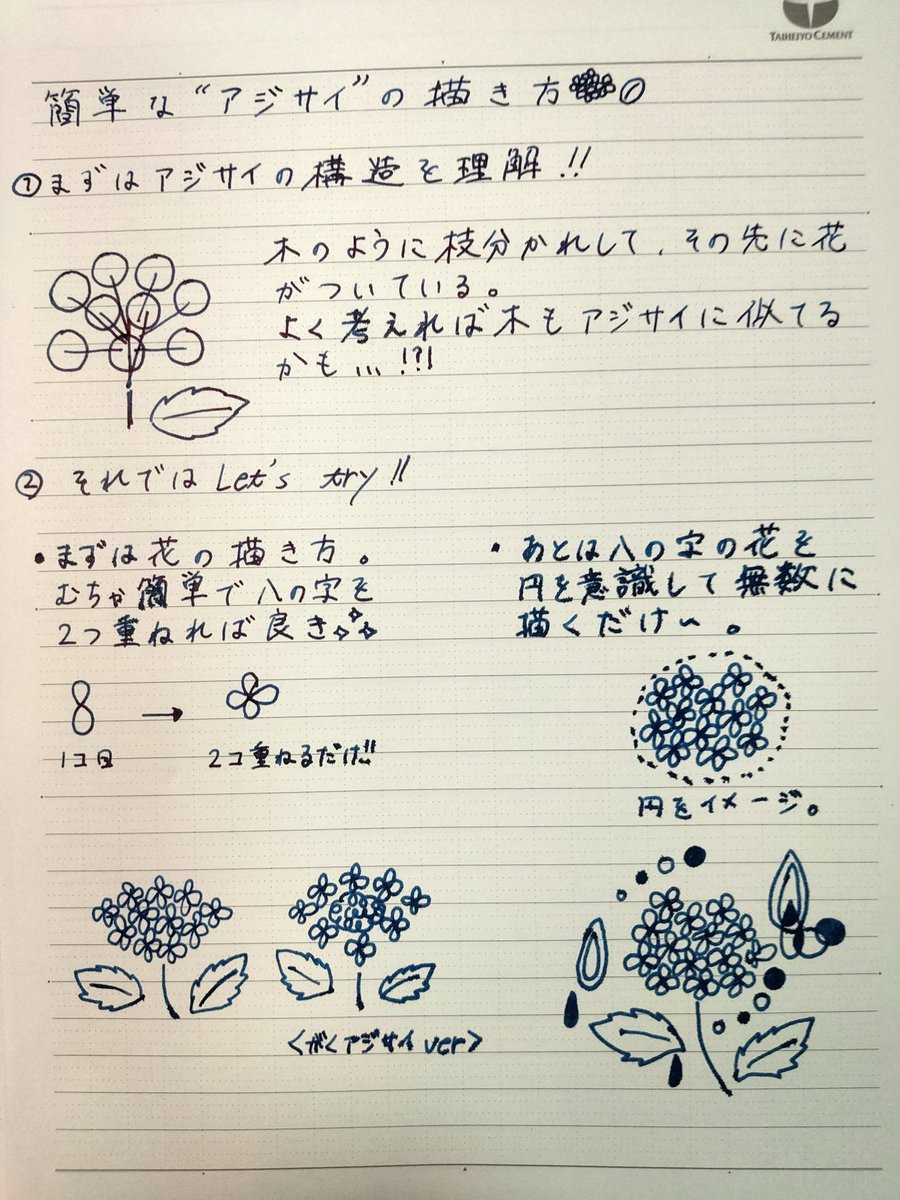 TAIHEIYO CEMENT
簡単な“アジサイ”の描き方
①まずはアジサイの構造を理解!!
木のように枝分かれして、その先に花
がついている。
よく考えれば木もアジサイに似てる
かも...!?!
② それでは Let's try!!
・まずは花の描き方。
むちゃ簡単で八の字を
2つ重ねれば良き
8
1コ目
→
2コ重ねるだけ!!
・あとは八の字の花を
円を意識して無数に
描くだけ〜。
円をイメージ。
<がくアジサイver>